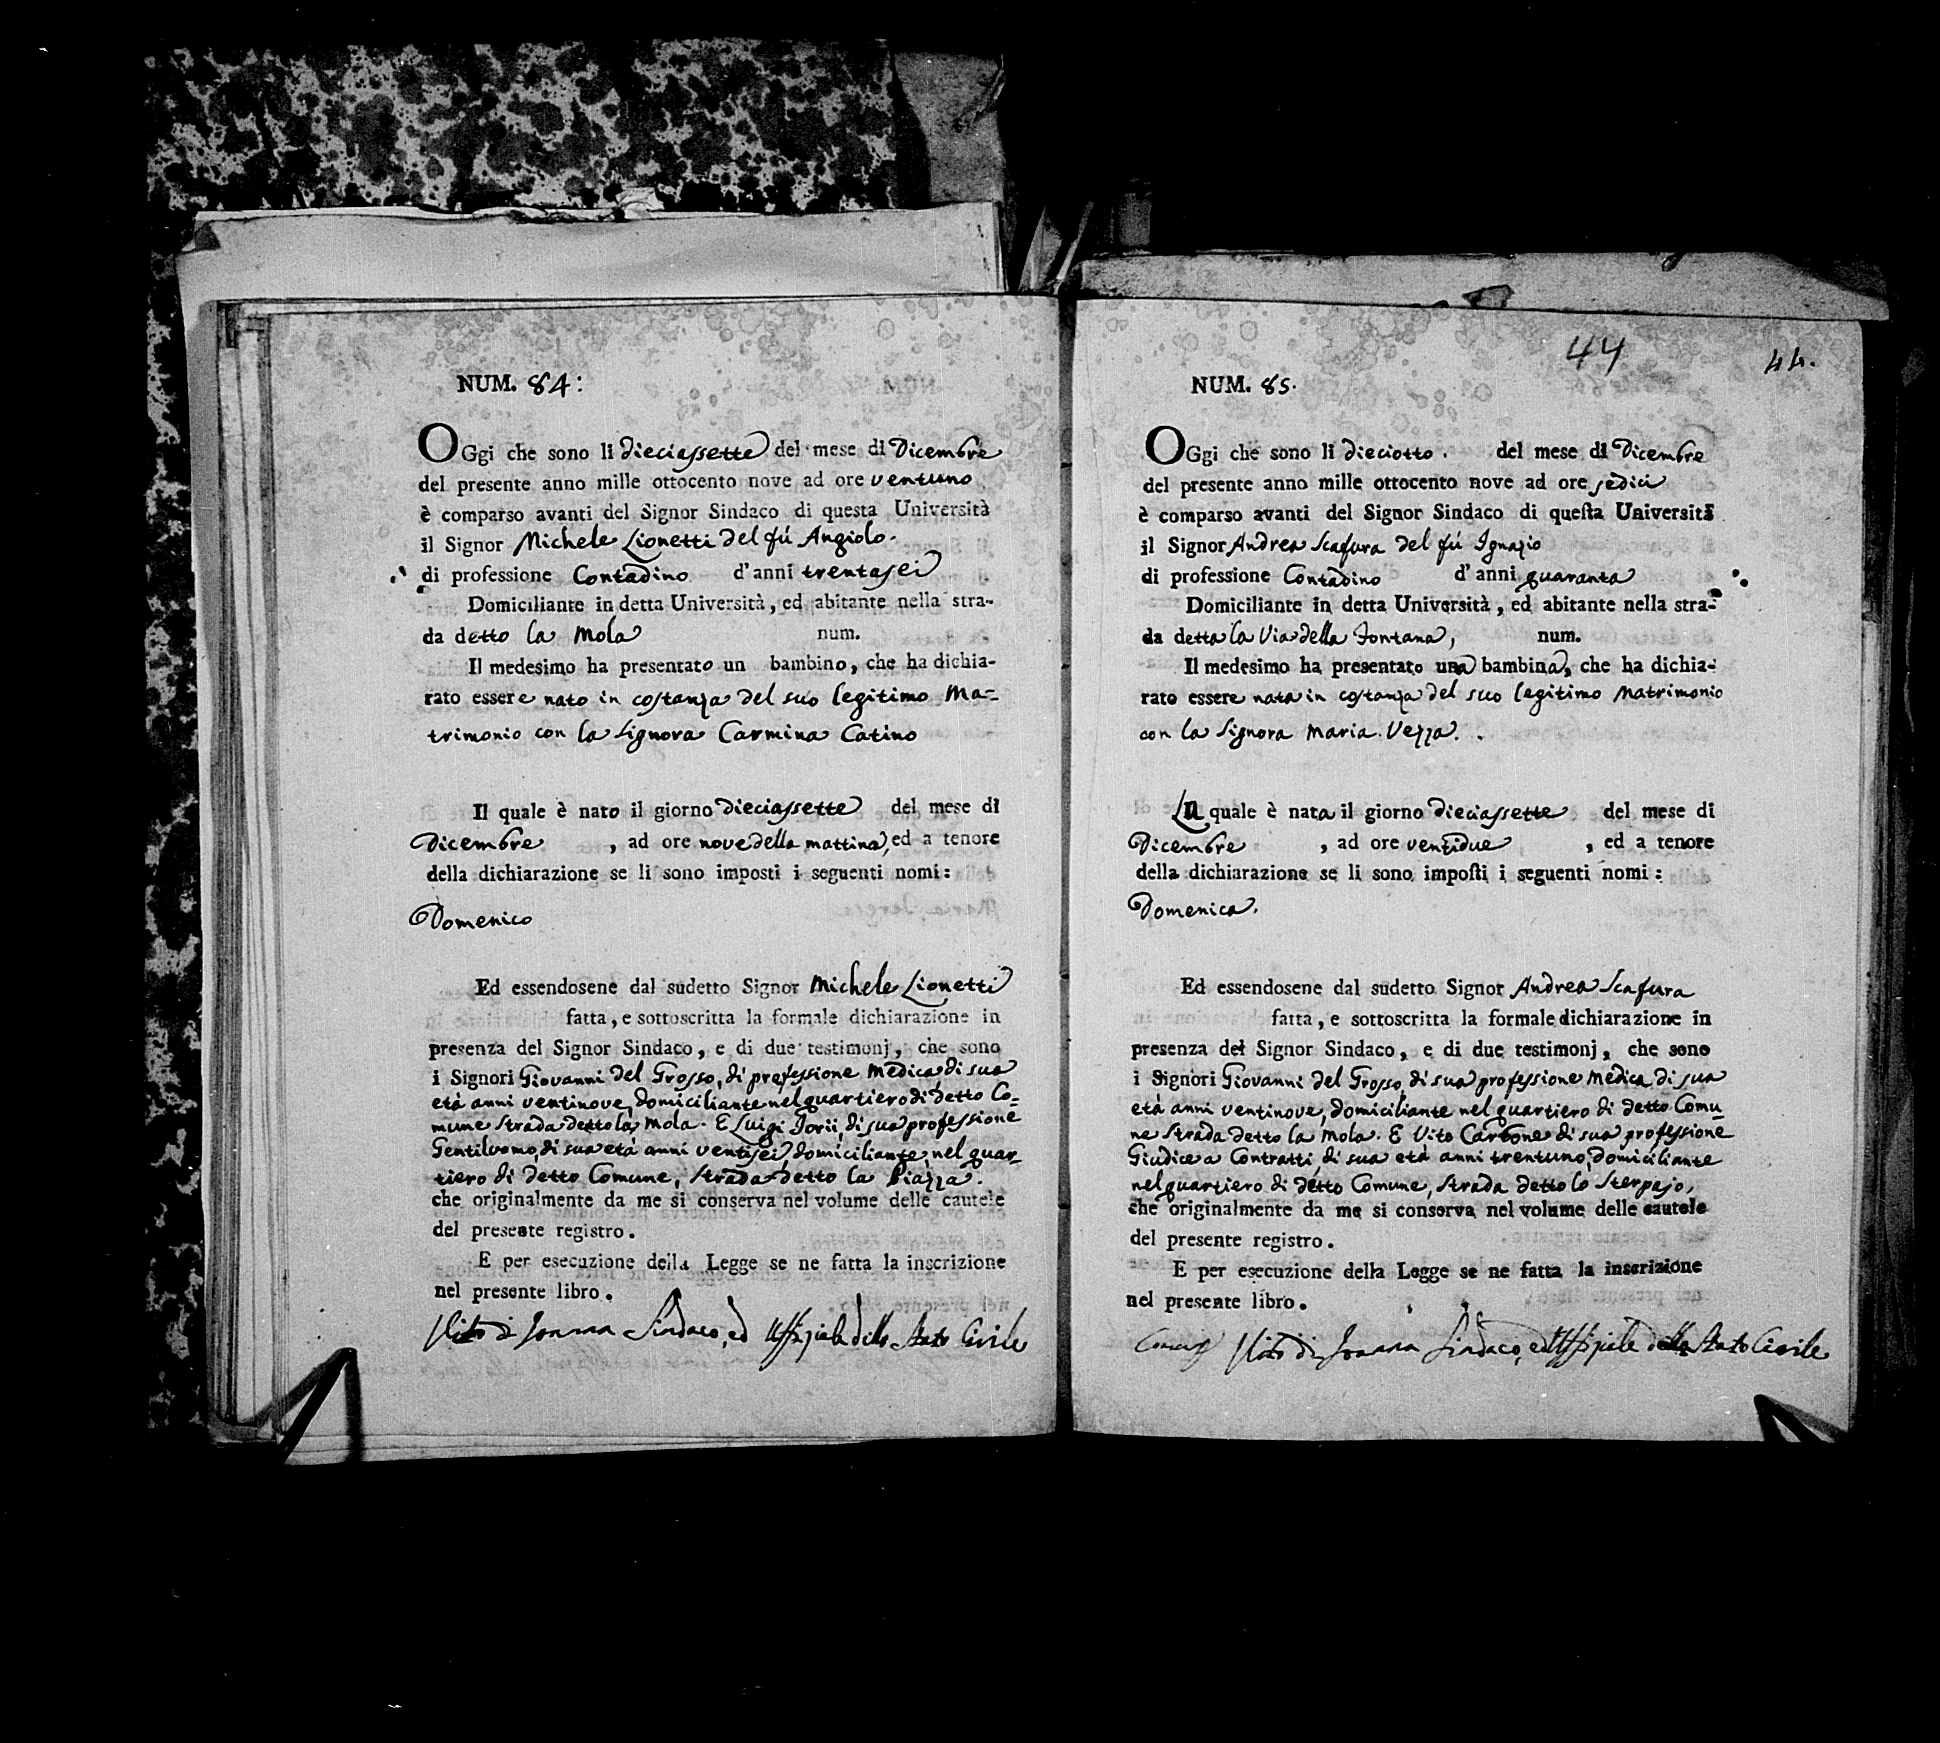 NUM. 84:
OGgi che sono li dieciassette del mese di Dicembre
del presente anno mille ottocento nove ad ore ventuno
è comparso avanti del Signor Sindaco di questa Università
il Signor Michele Lionetti del fú Angiolo.
di professione Contadino d'anni trentasei
Domiciliante in detta Università, ed abitante nella stra-
da detto la Mola num.
Il medesimo ha presentato un bambino, che ha dichia-
rato essere nato in costanza del suo legitimo Ma=
trimonio con la Signora Carmina Catino
Il quale è nato il giorno dieciassette del mese di
Dicembre, ad ore nove della mattina, ed a tenore
della dichiarazione se li sono imposti i seguenti nomi:
Domenico
Ed essendosene dal sudetto Signor Michele Lionetti
fatta, e sottoscritta la formale dichiarazione in
presenza del Signor Sindaco, e di due testimonj, che sono
i Signori Giovanni del Grosso, di professione Medica, di sua
età anni ventinove, domiciliante nel quartiero di detto Co=
mune Strada detto la Mola. E Luigi Iorii, di sua professione
Gentiluomo, di sua età anni ventisei domiciliante nel quar-
tiero di detto Comune, Strada detto la Piazza.
che originalmente da me si conserva nel volume delle cautele
del presente registro.
E per esecuzione della Legge se ne fatta la inscrizione
nel presente libro.
Vito di Ioanna Sindaco, ed Uffiziale dello Stato Civile
44
44.
NUM. 85.
OGgi che sono li dieciotto. del mese di Dicembre
del presente anno mille ottocento nove ad ore sedici
è comparso avanti del Signor Sindaco di questa Università
il Signor Andrea Scafura del fú Ignazio
di professione Contadino d'anni quaranta
Domiciliante in detta Università, ed abitante nella stra-
da detta la Via della Fontana, num.
Il medesimo ha presentato una bambina, che ha dichia-
rato essere nata in costanza del suo legitimo Matrimonio
con la Signora Maria Vezza.
La quale è nata il giorno dieciassette del mese di
Dicembre, ad ore ventidue, ed a tenore
della dichiarazione se li sono imposti i seguenti nomi:
Domenica.
Ed essendosene dal sudetto Signor Andrea Scafura
fatta, e sottoscritta la formale dichiarazione in
presenza del Signor Sindaco, e di due testimonj, che sono
i Signori Giovanni del Grosso, di sua professione Medica, di sua
età anni ventinove, domiciliante nel quartiero di detto Comu
ne Strada detto la Mola. E Vito Carbone di sua professione
Giudice a Contratti, di sua età anni trentuno, domiciliante
nel quartiero di detto Comune, Strada detto lo Sterpajo,
che originalmente da me si conserva nel volume delle cautele
del presente registro.
E per esecuzione della Legge se ne fatta la inscrizione
nel presente libro.
Vito di Ioanna Sindaco, ed Uffiziale dello Stato Civile